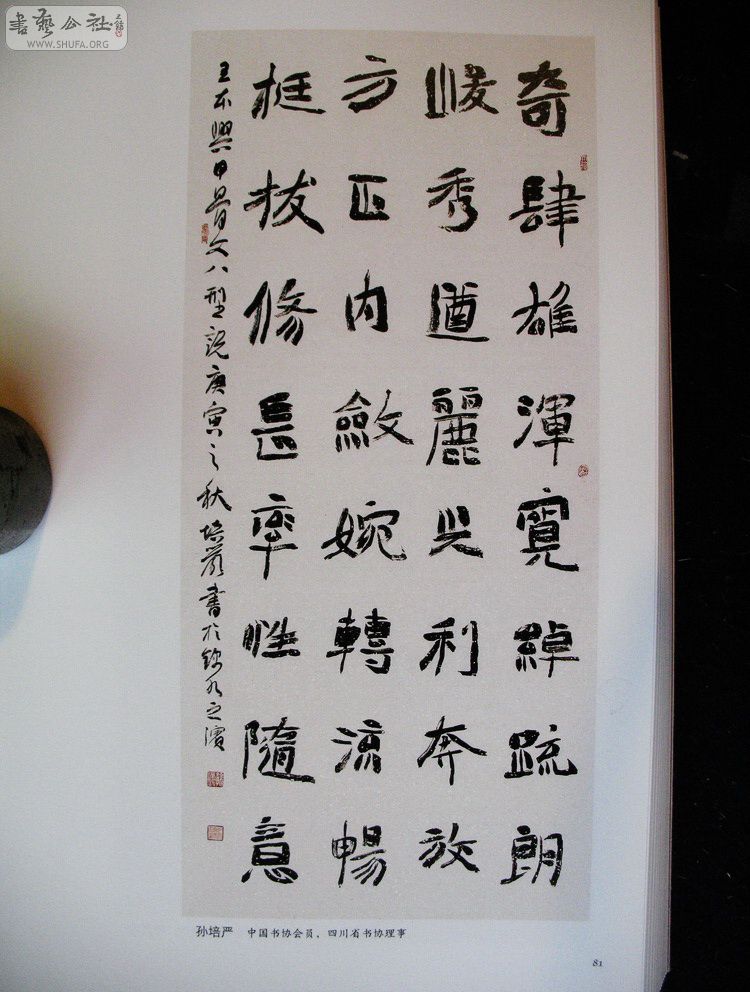 書藝公社
WWW.SHUFA.ORG
奇肆雄渾寬綽疏朗
峻秀遒麗利奔放
方正內斂婉轉流暢
挺拔修長率性隨意
王本興甲骨文八型說庚寅之秋培嚴書於錦水之濱
孙培严 中国书协会员、四川省书协理事
81